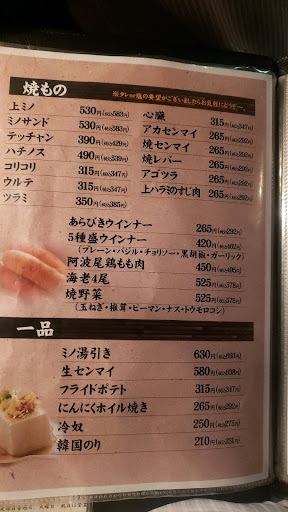 焼もの
※タレor塩の希望がございましたらお気軽にどうぞ…。
上ミノ 530円(税込583円)
ミノサンド 530円(税込583円)
テッチャン 390円(税込429円)
ハチノス 490円(税込539円)
コリコリ 315円(税込347円)
ウルテ 315円(税込347円)
ツラミ 350円(税込385円)
心臓 315円(税込347円)
アカセンマイ 265円(税込292円)
焼センマイ 265円(税込292円)
焼レバー 265円(税込292円)
アゴツラ 265円(税込292円)
上ハラミのすじ肉 265円(税込292円)
あらびきウインナー 265円(税込292円)
5種盛ウインナー 420円(税込462円)
(プレーン・バジル・チョリソー・黒胡椒・ガーリック)
阿波尾鶏もも肉 450円(税込495円)
海老4尾 525円(税込578円)
焼野菜 525円(税込578円)
(玉ねぎ・椎茸・ピーマン・ナス・トウモロコシ)
一品
ミノ湯引き 630円(税込693円)
生センマイ 580円(税込638円)
フライドポテト 315円(税込347円)
にんにくホイル焼き 265円(税込292円)
冷奴 250円(税込275円)
韓国のり 210円(税込231円)